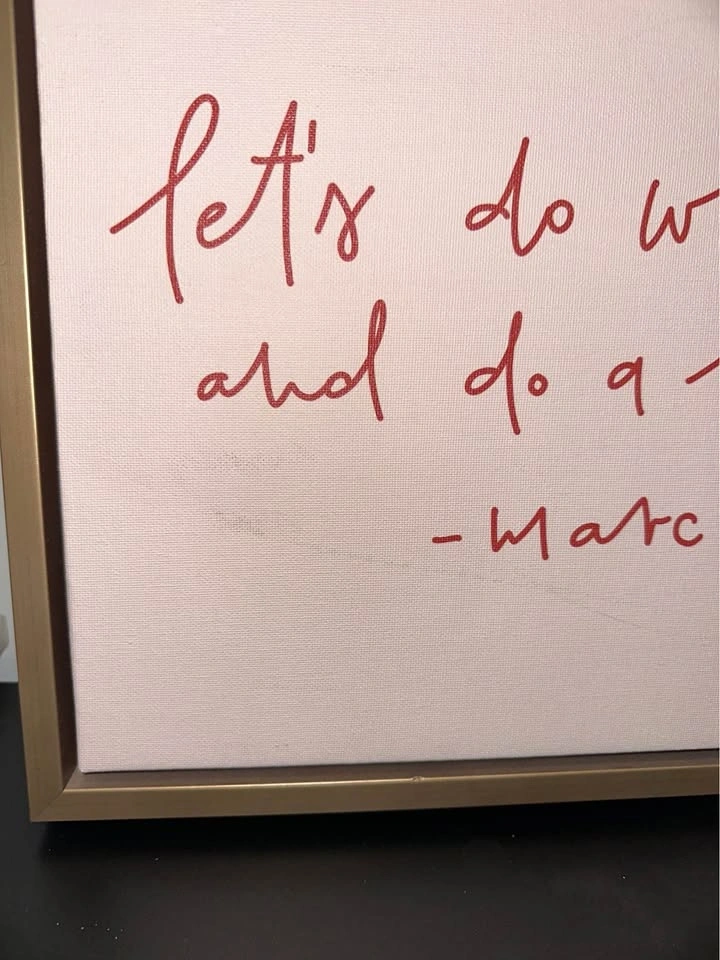 let's do w
and do a
-Marc